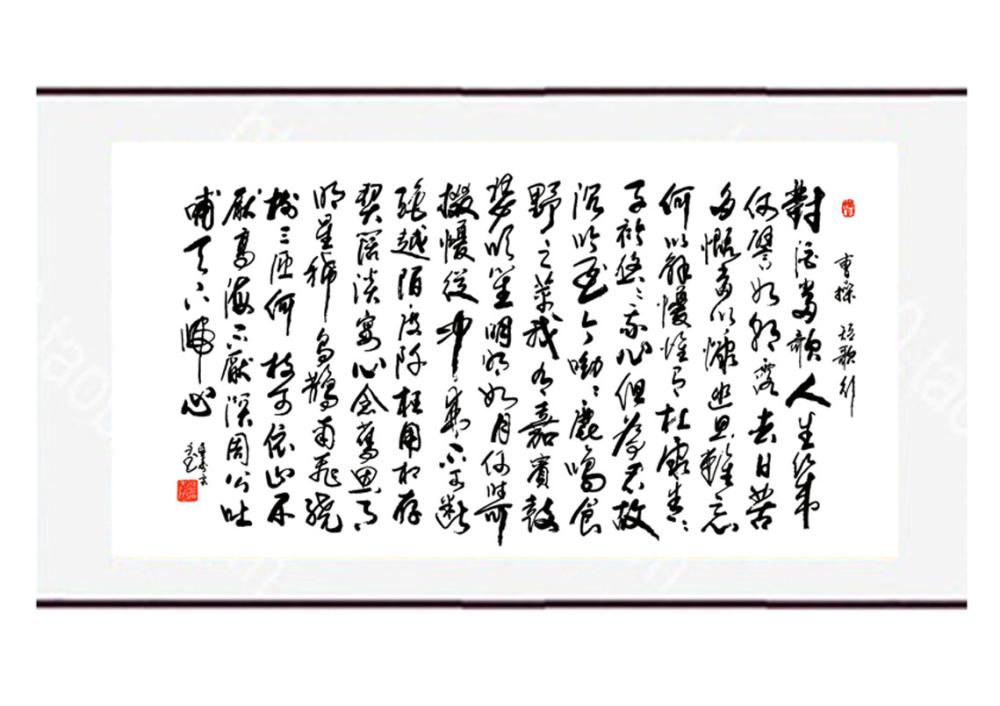 曹操 短歌行
對酒當歌人生幾
何譬如朝露去日苦
多慨當以慷幽思難忘
何以解憂惟有杜康青〻
子衿悠〻我心但為君故
沉吟至今呦〻鹿鳴食
野之苹我有嘉賓鼓
瑟吹笙明明如月何時可
掇憂從中來不可斷
絕越陌度阡枉用相存
契闊談宴心念舊恩月
明星稀烏鵲南飛繞
樹三匝何枝可依山不
厭高海不厭深周公吐
哺天下歸心